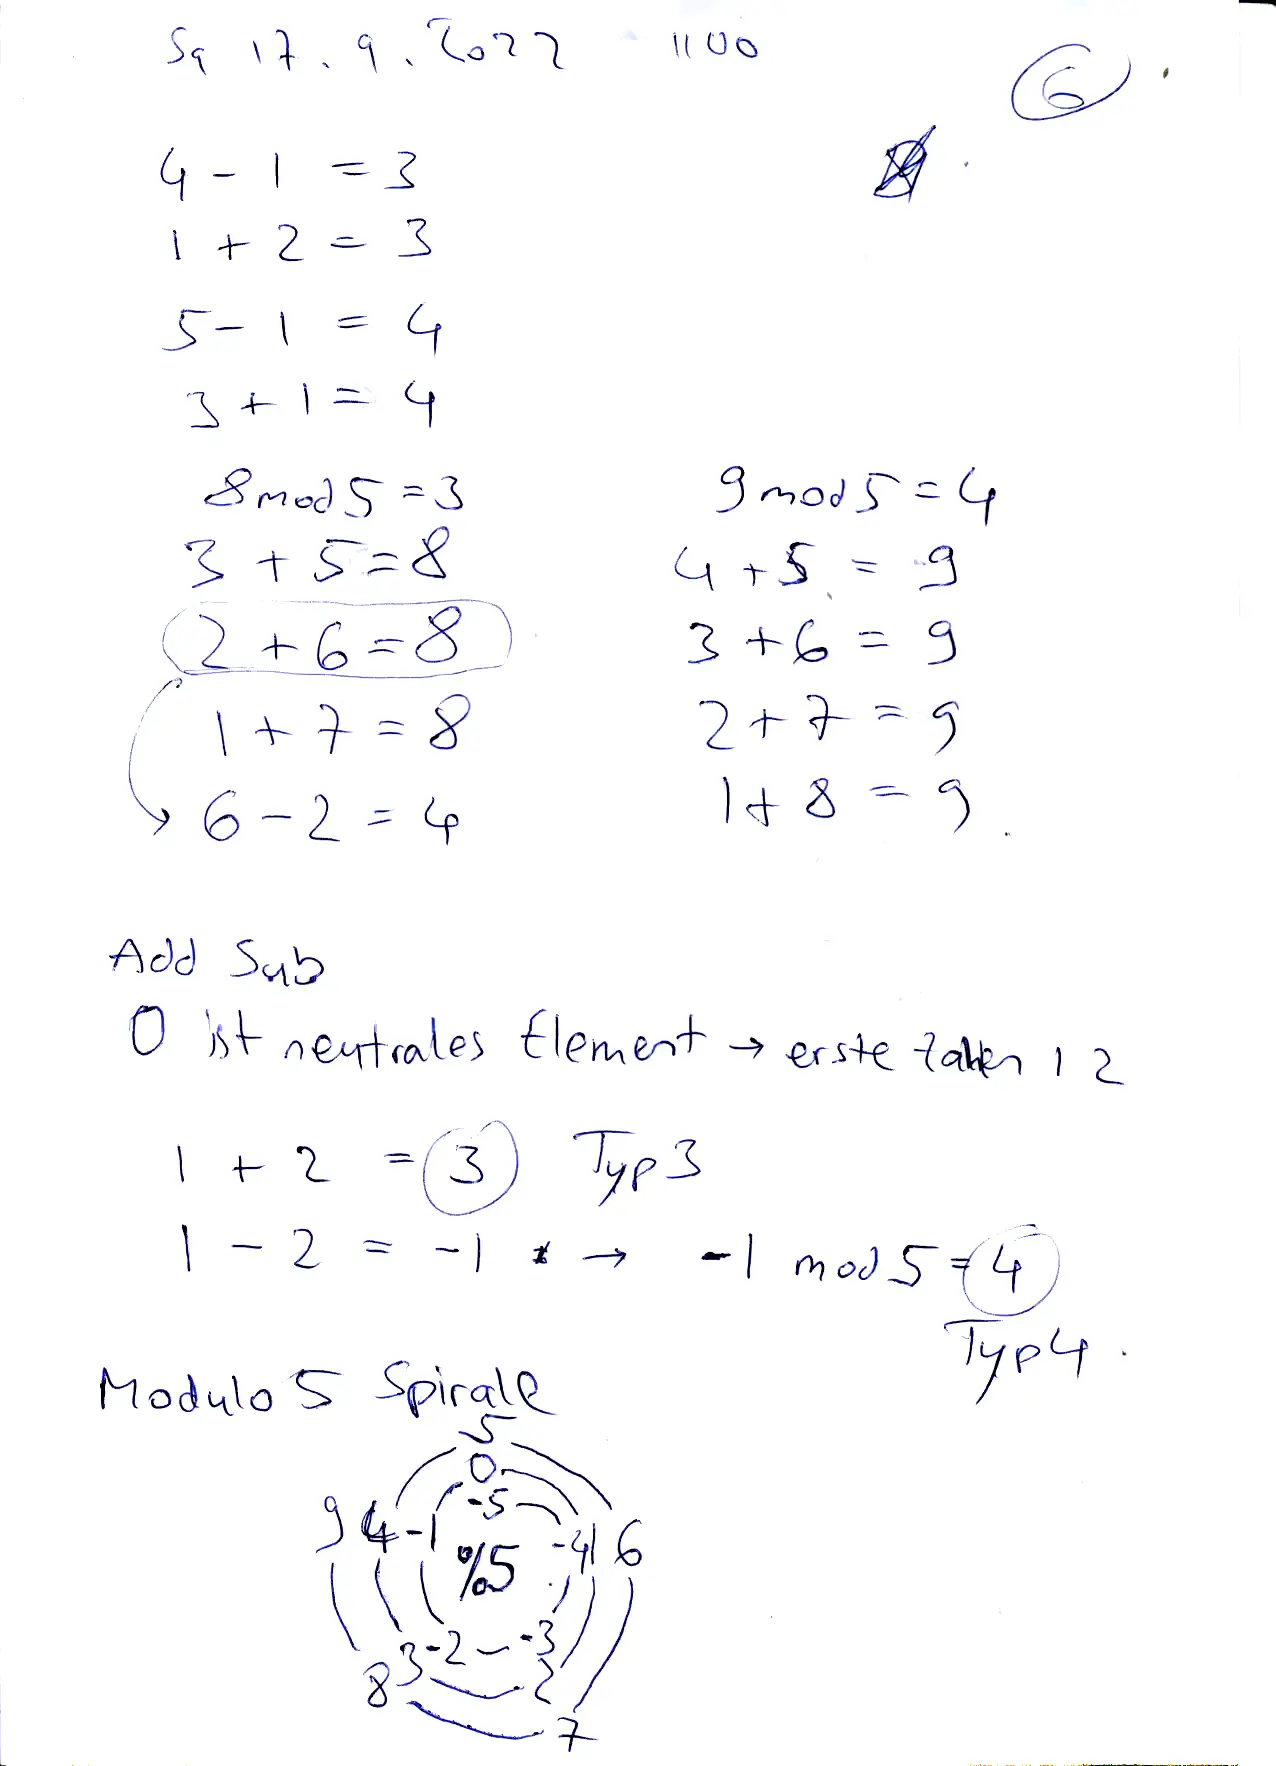 Sa 17.9.2022 1100
6
4 - 1 = 3
1 + 2 = 3
5 - 1 = 4
3 + 1 = 4
8 mod 5 = 3
3 + 5 = 8
2 + 6 = 8
1 + 7 = 8
6 - 2 = 4
9 mod 5 = 4
4 + 5 = 9
3 + 6 = 9
2 + 7 = 9
1 + 8 = 9
Add Sub
0 ist neutrales Element → erste Zahlen 1 2
1 + 2 = 3 Typ 3
1 - 2 = -1 → -1 mod 5 = 4
Typ 4
Modulo 5 Spirale
5
0
-5
9 4 -1 %5 -4 1 6
3 -2 -3
8 2
7